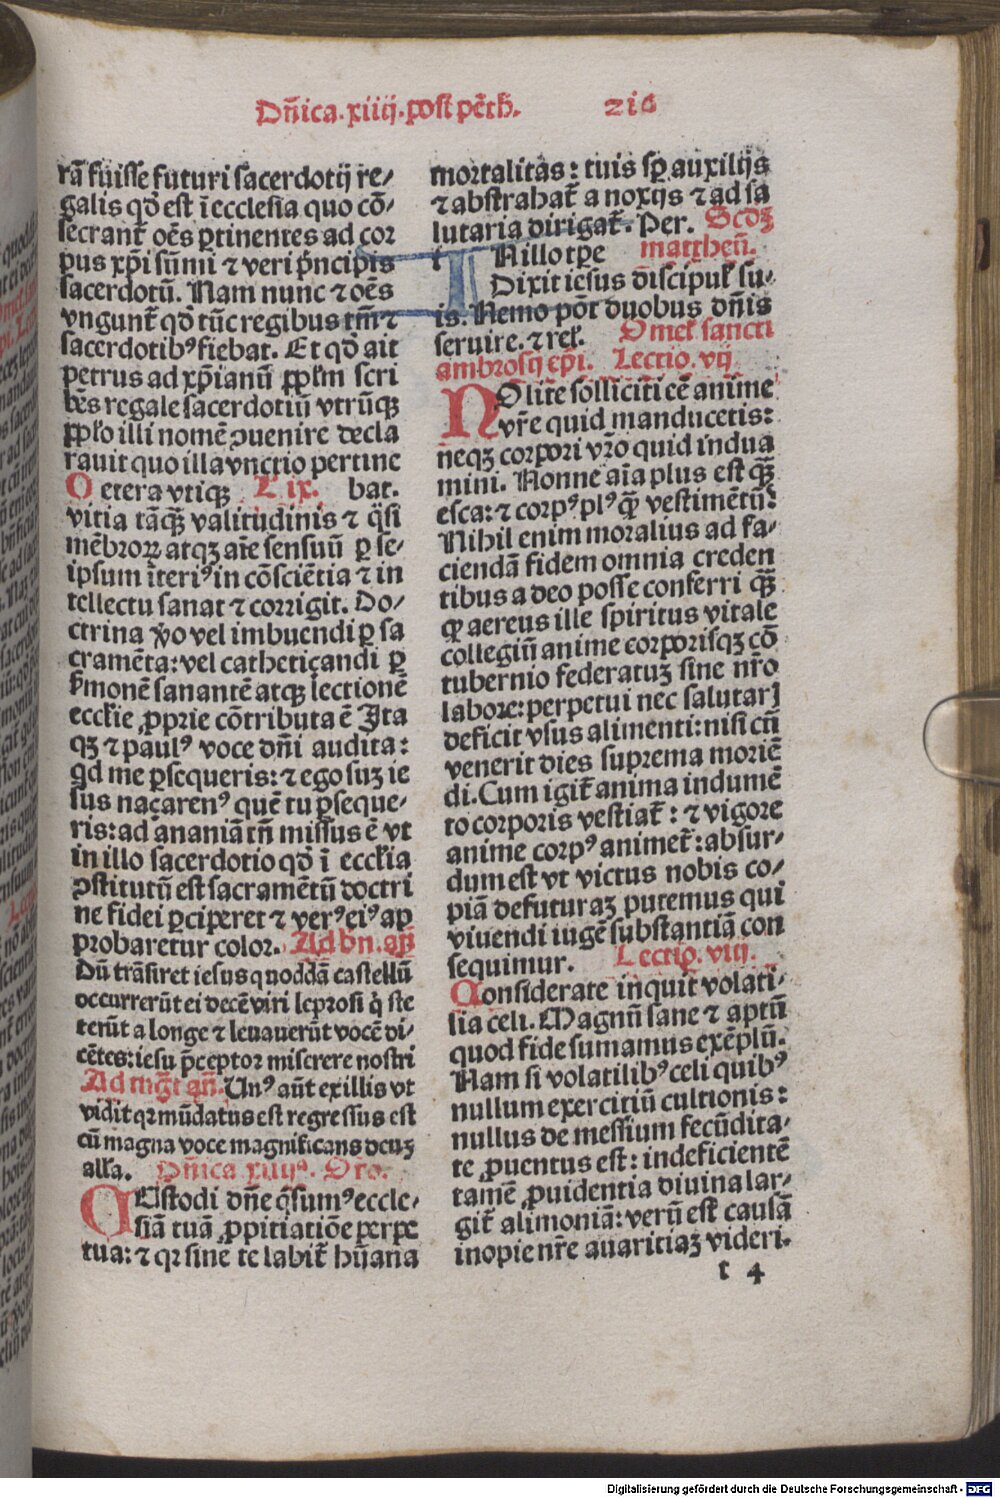 Dn̄ica.xiiij.post pēth̄. 216
rā fuisse futuri sacerdotij re-
galis qd̄ est ī ecclesia quo cō-
secrant̄ oēs ꝑtinentes ad cor
pus xp̄i sūmi ⁊ veri p̄ncipis
sacerdotū. Nam nunc ⁊ oēs
vngunt̄ qd̄ tūc regibus tm̄ ⁊
sacerdotibꝰ fiebat. Et qd̄ ait
petrus ad xp̄ianū ꝓplm̄ scri
bēs regale sacerdotiū vtrūqꝫ
ꝓplo illi nomē ꝯuenire decla
rauit quo illa vnctio pertine
Cetera vtiqꝫ L ix. bat.
vitia tāqꝫ̄ valitudinis ⁊ q̄si
mēbroꝝ atqꝫ aīe sensuū ꝑ se-
ipsum īteriꝰ in cōsciētia ⁊ in
tellectu sanat ⁊ corrigit. Do-
ctrina v̄o vel imbuendi ꝑ sa
cramēta: vel cathetiçandi ꝑ
s̄monē sanantē atqꝫ lectionē
eccl̄ie ꝓprie cōtributa ē Ita
qꝫ ⁊ paulꝰ voce dn̄i audita:
qd me ꝑsequeris: ⁊ ego suꝫ ie
sus naçarenꝰ quē tu ꝑseque-
ris: ad ananiā tn̄ missus ē vt
in illo sacerdotio qd̄ ī eccl̄ia
ꝯstitutū est sacramētū doctri
ne fidei ꝑciperet ⁊ verꝰ eiꝰ ap
probaretur color. Ad bn̄. an̄
Dū trāsiret iesus quoddā castellū
occurrerūt ei decē viri leprosi q̇ ste
terūt a longe ⁊ leuauerūt vocē di-
cētes: iesu p̄ceptor miserere nostri
Ad mḡt an̄. Unꝰ aūt ex illis vt
vidit qꝛ mūdatus est regressus est
cū magna voce magnificans deuꝫ
all'a. Dn̄ica xiiijᵃ. Oro.
CUstodi dn̄e q̄sumꝰ eccle-
siā tuā ꝓpitiatiōe perpe
tua: ⁊ qꝛ sine te labit̄ hūana
mortalitas: tuis sꝑ auxilijs
⁊ abstrahat̄ a noxijs ⁊ ad sa
lutaria dirigat̄. Per. Scdꝫ
IN illo tꝑe mattheū.
Dixit iesus discipul' su-
is. Nemo pōt duobus dn̄is
seruire. ⁊ rel'. Omel' sancti
ambrosij ep̄i. Lectio. vij
NOlite solliciti eē anime
vr̄e quid manducetis:
neqꝫ corpori vr̄o quid indua
mini. Nonne aīa plus est qꝫ̄
esca: ⁊ corpꝰ plꝰ q̄ꝫ vestimētū?
Nihil enim moralius ad fa-
ciendā fidem omnia creden
tibus a deo posse conferri qꝫ̄
ꝙ aereus ille spiritus vitale
collegiū anime corporisqꝫ cō
tubernio federatuꝫ sine nr̄o
labore: perpetui nec salutari
deficit vsus alimenti: nisi cū
venerit dies suprema moriē
di. Cum igit̄ anima indumē
to corporis vestiat̄: ⁊ vigore
anime corpꝰ animet̄: absur-
dum est vt victus nobis co-
piā defuturaꝫ putemus qui
viuendi iuge substantiā con
sequimur. Lectio. viij.
Considerate inquit volati-
lia celi. Magnū sane ⁊ aptū
quod fide sumamus exēplū.
Nam si volatilibꝰ celi quibꝰ
nullum exercitiū cultionis:
nullus de messium fecūdita-
te ꝓuentus est: indeficientē
tamē ꝓuidentia diuina lar-
git̄ alimoniā: verū est causā
inopie nr̄e auaritiaꝫ videri.
t 4
Digitalisierung gefördert durch die Deutsche Forschungsgemeinschaft - DFG